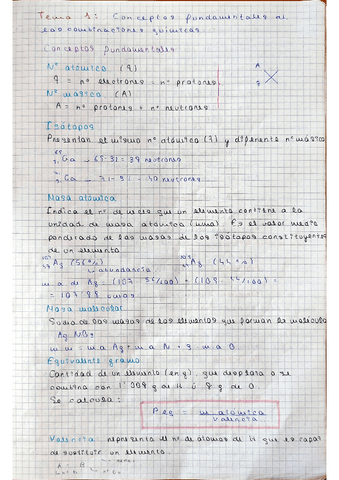 Tema 1: Conceptos fundamentales de
las combinaciones químicas
Conceptos fundamentales
Nº atómico (z)
z = nº electrones = nº protones
A
z X
Nº másico (A)
A = nº protones + nº neutrones
Isótopos
Presentan el mismo nº atómico (z) y diferente nº másico
Ga → 65-31 = 34 neutrones
Ga → 71-31 = 40 neutrones
Masa atómica
Indica el nº de veces que un elemento contiene a la
unidad de masa atómica (uma). Es el valor medio
ponderado de las masas de los isótopos constituyentes
de un elemento.
Ag (56%) Ag (44%)
abundancia
m a de Ag = (107 · 56/100) + (109 · 44/100)
= 107'88 umas
Masa molecular
Suma de las masas de los elementos que forman la molécula
Ag NO3
m m = m a Ag + m a N + 3 m a O
Equivalente gramo
Cantidad de un elemento (en g), que desplaza o se
combina con 1'008 g de H ó 8 g de O.
Se calcula:
P eq = m atómica / valencia
Valencia: representa el nº de átomos de H que es capaz
de sustituir un elemento.